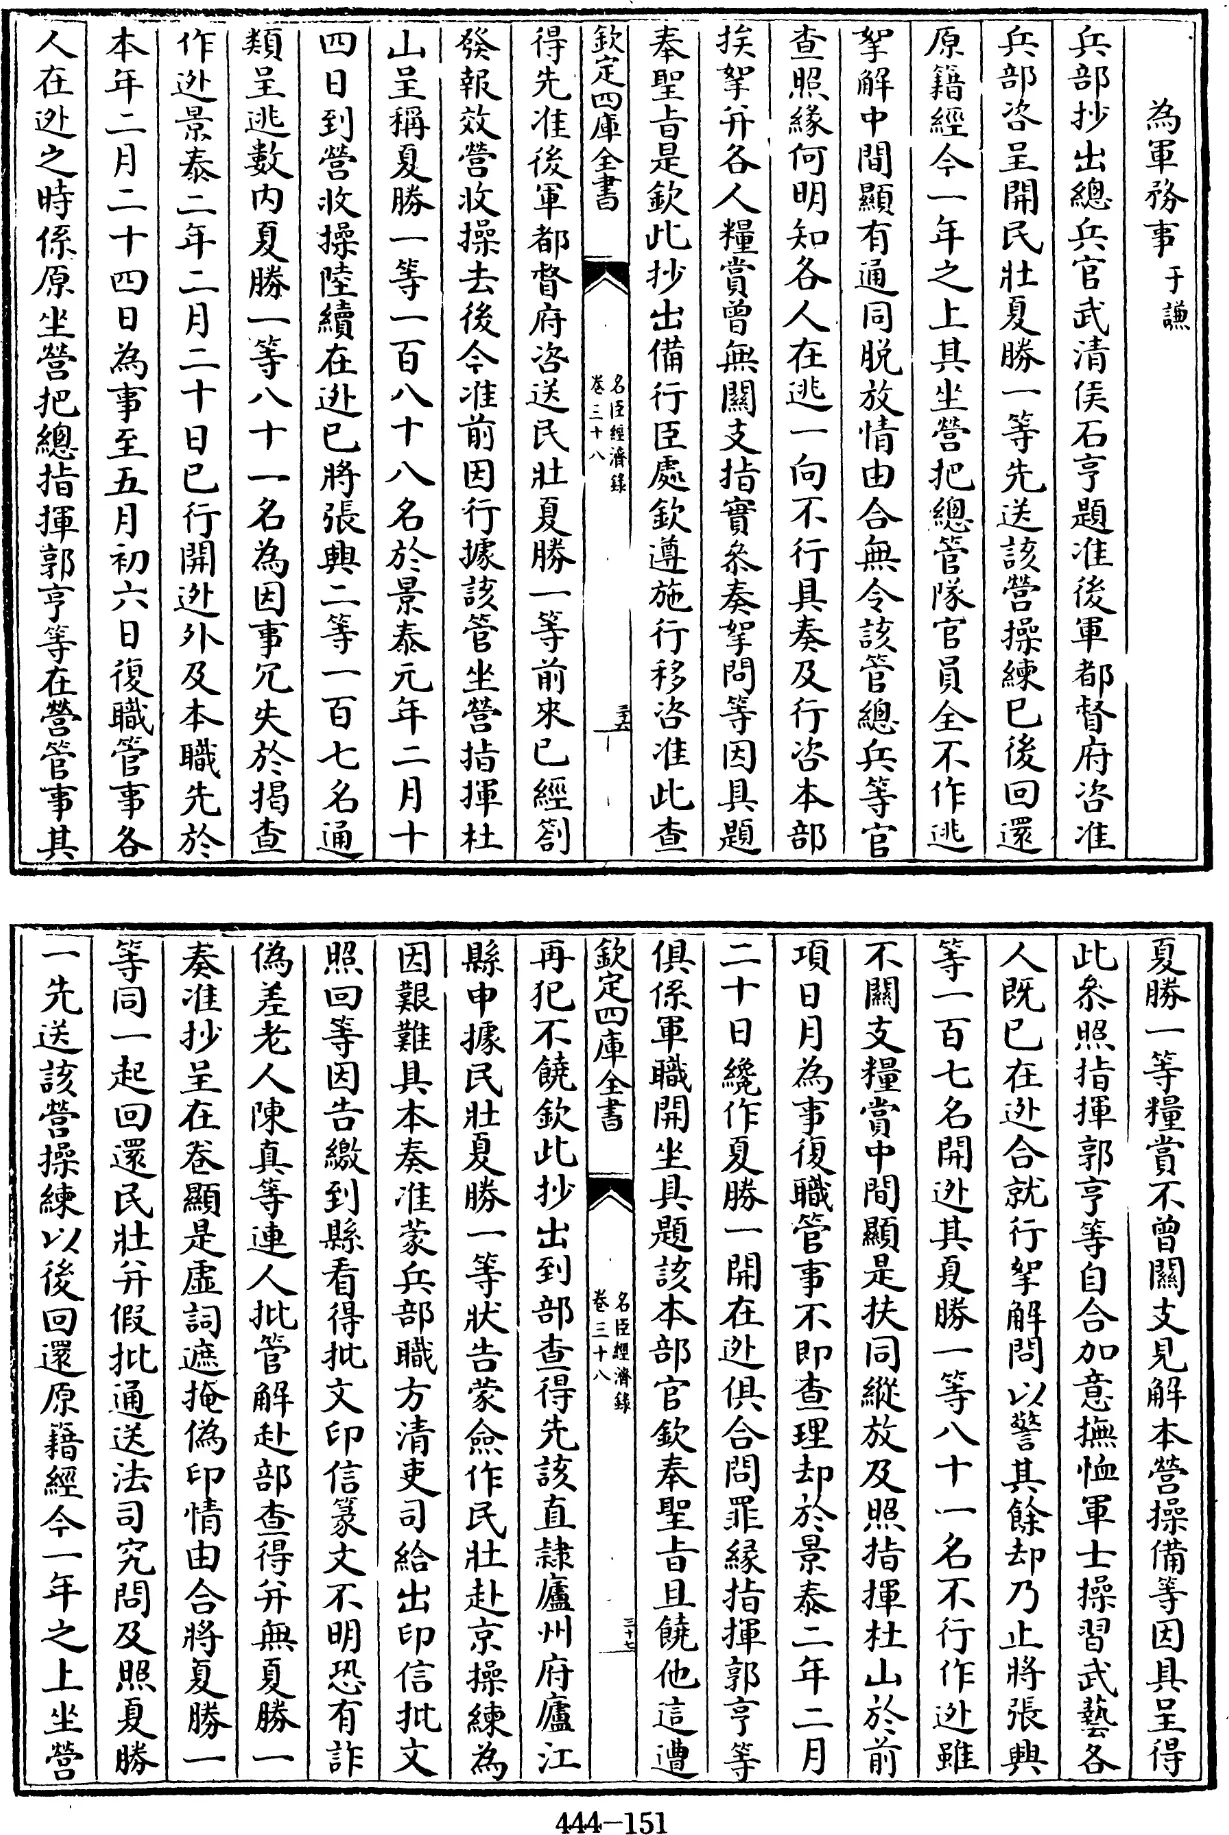 為軍務事 于謙
兵部抄出總兵官武清侯石亨題准後軍都督府咨准
兵部咨呈開民壯夏勝一等先送該營操練已後回還
原籍經今一年之上其坐營把總管隊官員全不作逃
拏解中間顯有通同脱放情由合無令該管總兵等官
查照緣何明知各人在逃一向不行具奏及行咨本部
挨拏并各人糧賞曾無關支指實叅奏拏問等因具題
奉聖旨是欽此抄出備行臣處欽遵施行移咨准此查
欽定四庫全書
名臣經濟錄
卷三十八
三十六
得先准後軍都督府咨送民壯夏勝一等前來已經劄
發報效營收操去後今准前因行據該管坐營指揮杜
山呈稱夏勝一等一百八十八名於景泰元年二月十
四日到營收操陸續在逃已將張興二等一百七名通
類呈逃數内夏勝一等八十一名為因事冗失於揭查
作逃景泰二年二月二十日已行開逃外及本職先於
本年二月二十四日為事至五月初六日復職管事各
人在逃之時係原坐營把總指揮郭亨等在營管事其
夏勝一等糧賞不曾關支見解本營操備等因具呈得
此叅照指揮郭亨等自合加意撫恤軍士操習武藝各
人既已在逃合就行拏解問以警其餘却乃止將張興
等一百七名開逃其夏勝一等八十一名不行作逃雖
不關支糧賞中間顯是扶同縱放及照指揮杜山於前
項日月為事復職管事不即查理却於景泰二年二月
二十日纔作夏勝一開在逃俱合問罪緣指揮郭亨等
俱係軍職開坐具題該本部官欽奉聖旨且饒他這遭
欽定四庫全書
名臣經濟錄
卷三十八
三十七
再犯不饒欽此抄出到部查得先該直隸廬州府廬江
縣申據民壯夏勝一等狀告蒙僉作民壯赴京操練為
因艱難具本奏准蒙兵部職方清吏司給出印信批文
照回等因告繳到縣看得批文印信篆文不明恐有詐
偽差老人陳真等連人批管解赴部查得并無夏勝一
奏准抄呈在卷顯是虛詞遮掩偽印情由合將夏勝一
等同一起回還民壯并假批通送法司究問及照夏勝
一先送該營操練以後回還原籍經今一年之上坐營
444-151